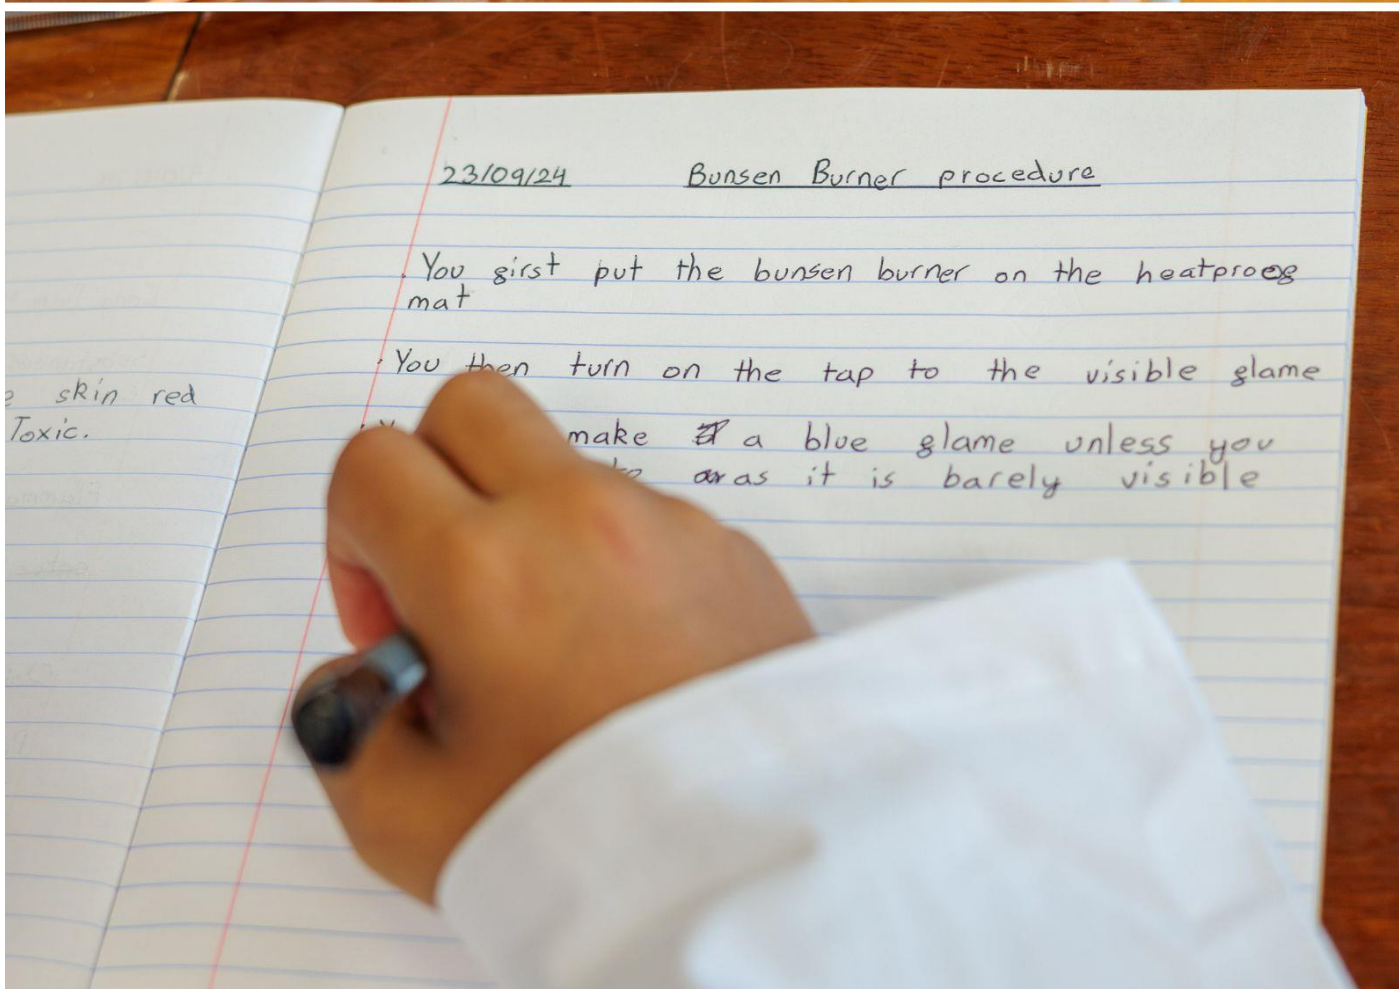 23/09/24 Bunsen Burner procedure
. You first put the bunsen burner on the heatproof
mat
. You then turn on the tap to the visible flame
make a blue flame unless you
as it is barely visible
skin red
Toxic.